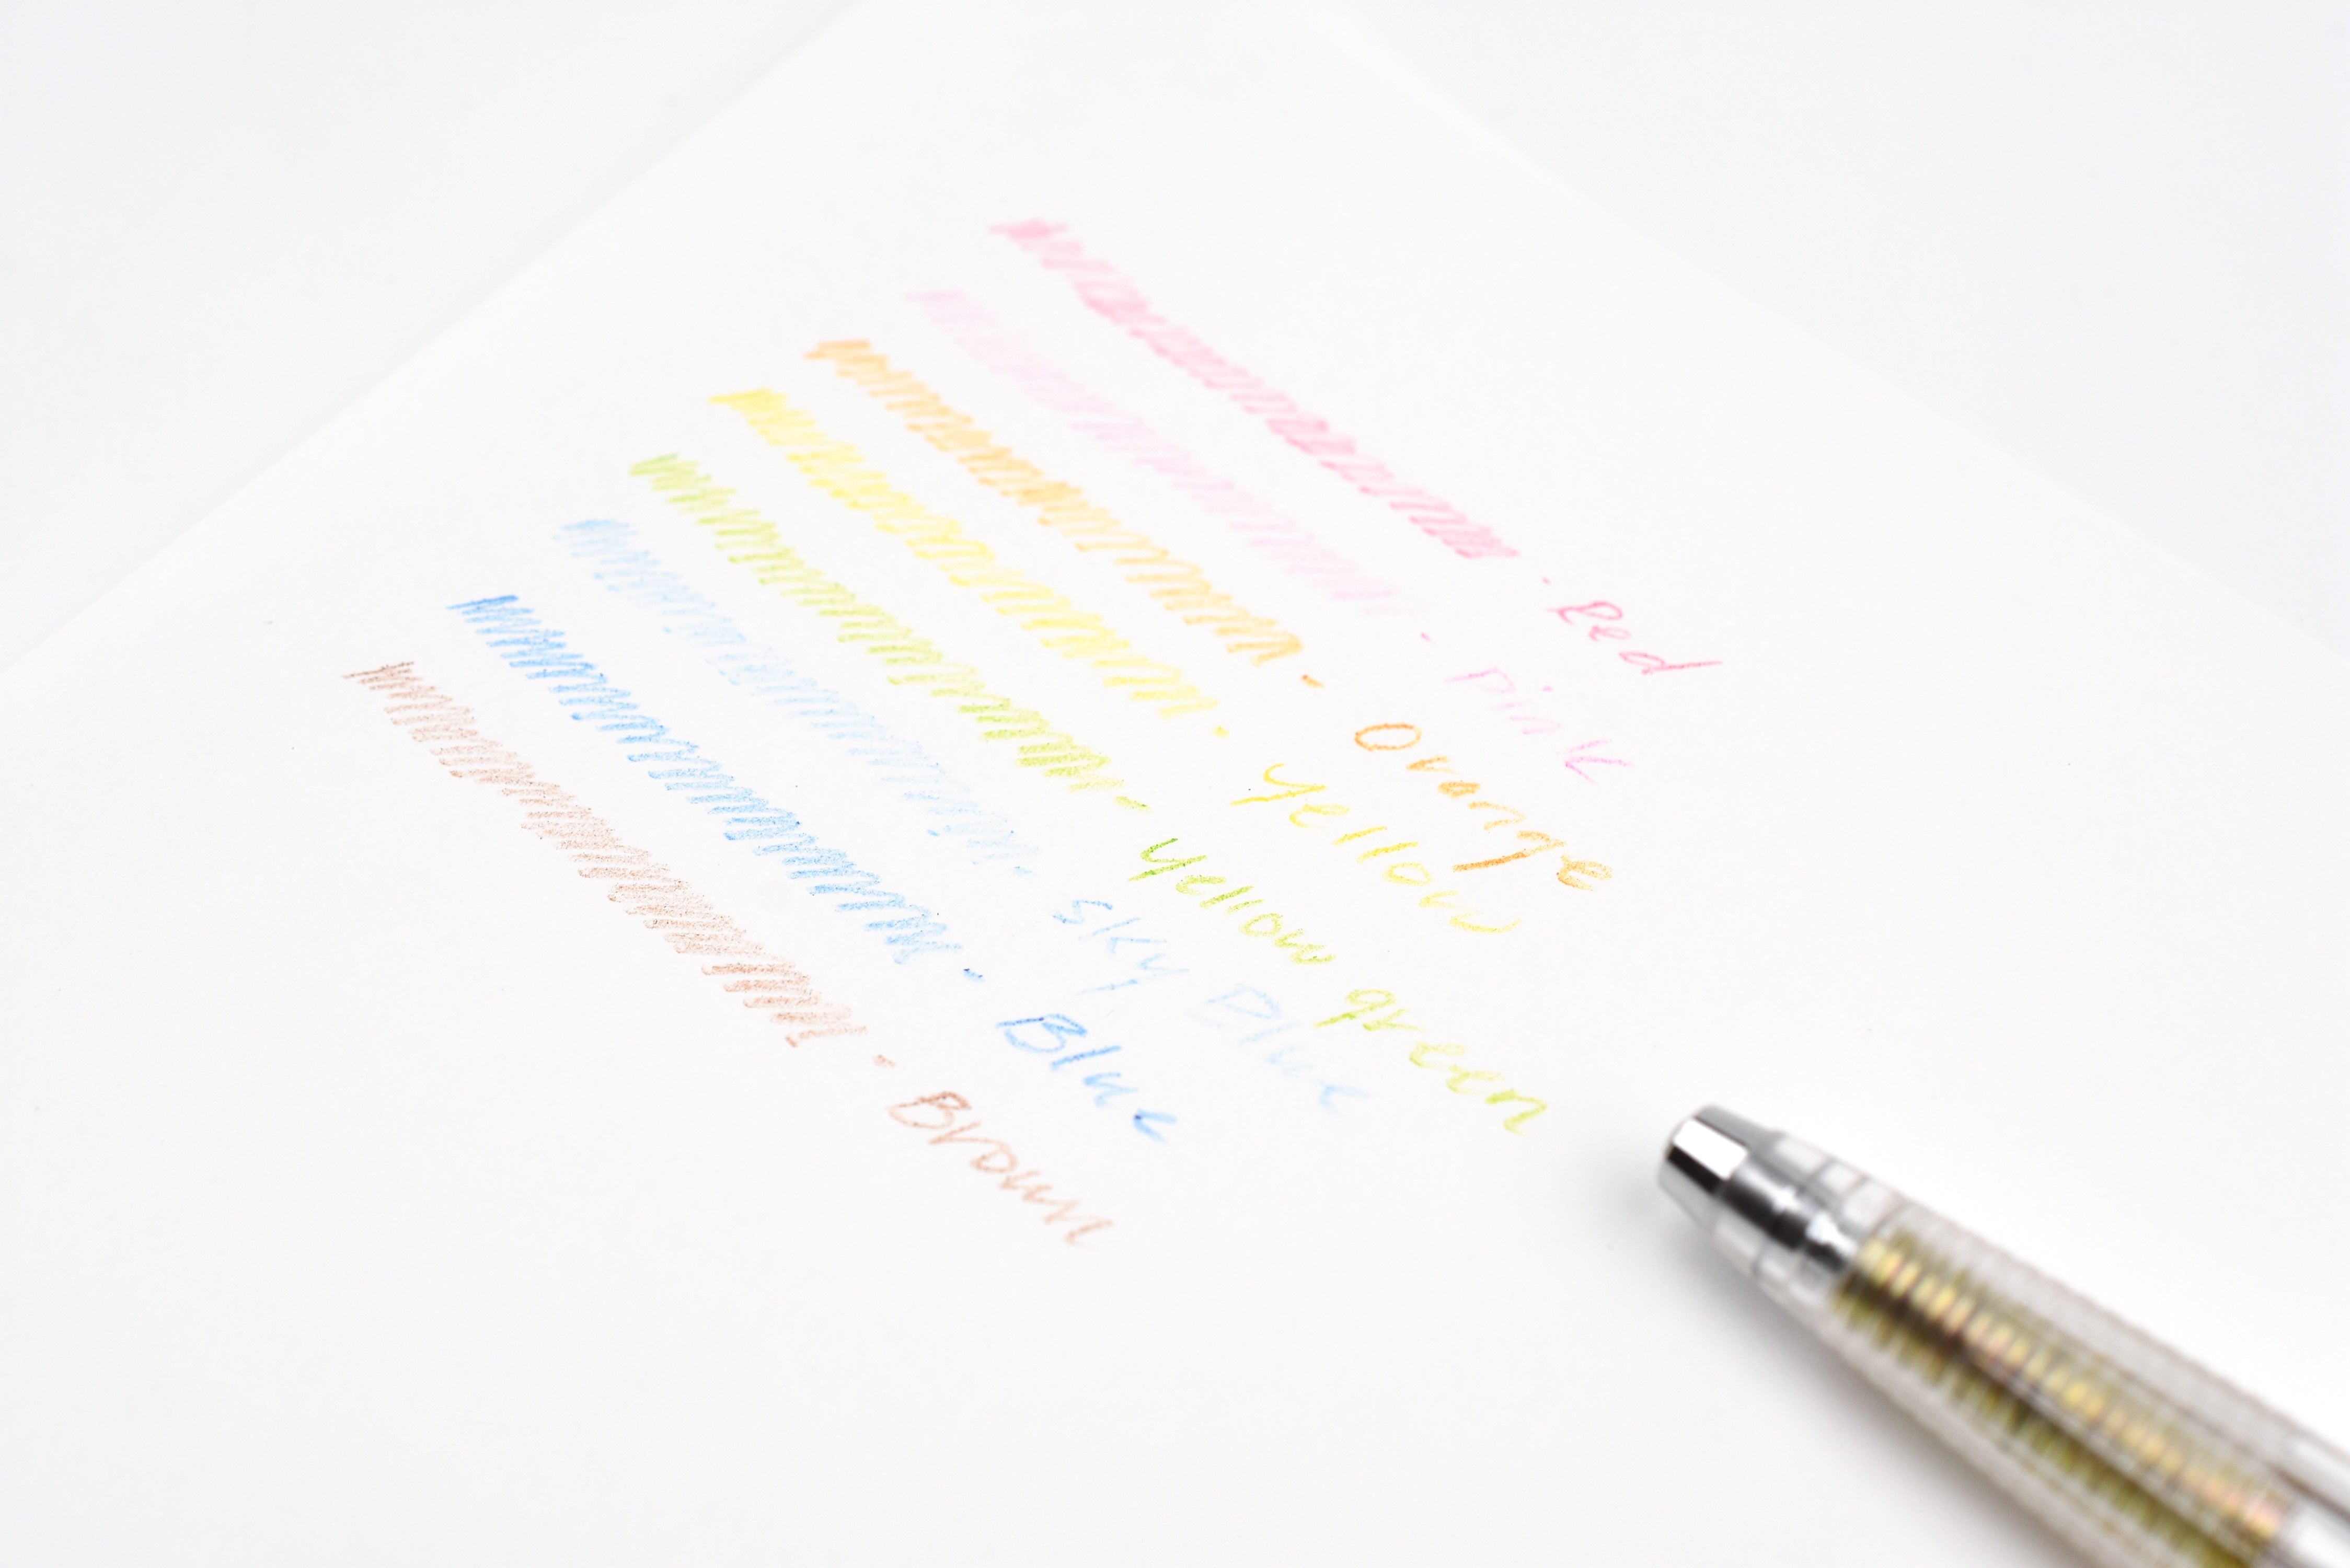 - Red
- Pink
- Orange
- Yellow
- Yellow green
- Sky Blue
- Blue
- Brown